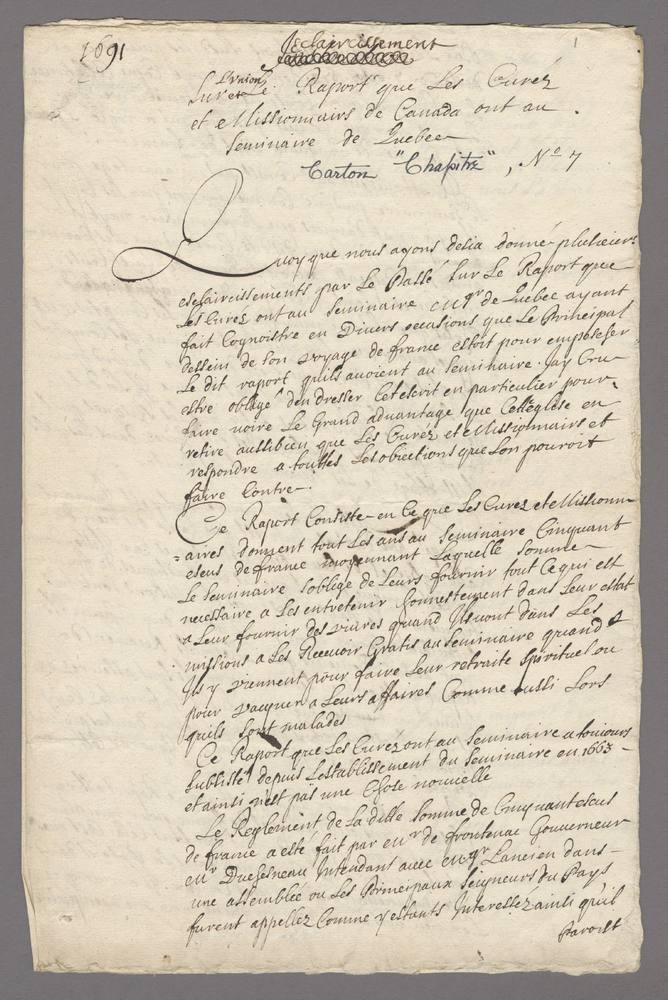 1691
1
Esclaircissement
L'union
Sur et Le Raport que Les Curéz
et Missionnairs de Canada ont au
Seminaire de Quebec
Carton "Chapitre", No 7
Quoy que nous ayons desia donné plusieurs
esclaircissements par Le Passé Sur Le Raport que
Les Curez ont au Seminaire Mgr de Quebec ayant
fait Cognoistre en Divers occasions que Le Principal
dessein de Son voyage de france estoit pour empescher
Le dit raport quils avoient au Seminaire. Jay Cru
estre obligé den dresser Cet escrit en particulier pour
faire voire Le Grand advantage que Cette église en
retire aussibien que Les Curéz et Missionnairs et
respondre a touttes Les obiections que Lon pouroit
faire Contre.
Ce Raport Consiste en Ce que Les Curez et Missionn
=aires donnent tout Les ans au Seminaire Cinquant
escus de france moyennant Laquelle Somme
Le Seminaire Soblige de Leurs fournir tout Ce qui est
necessaire a Les entretenir honnestement dans Leur estat
a Leur fournir des vivres quand Ils vont dans Les
missions a Les Recevoir Gratis au Seminaire quand
Ils y viennent pour faire Leur retraite Spirituel ou
pour vacquer a Leurs affaires Comme aussi Lors
quils Sont malades
Ce Raport que Les Curez ont au Seminaire a toujours
Subsisté depuis Lestablissement du Seminaire en 1663
et ainsi n'est pas une Chose nouvelle
Le Reglement de La ditte Somme de Cinquant escus
de france a esté fait par Mr de frontenac Gouverneur
Mr Duchesneau Intendant avec Mgr Lancien dans
une assemblée ou Les Principaux Seigneurs du Pays
furent appellez Comme y estants Interessez ainsi quil
paroist